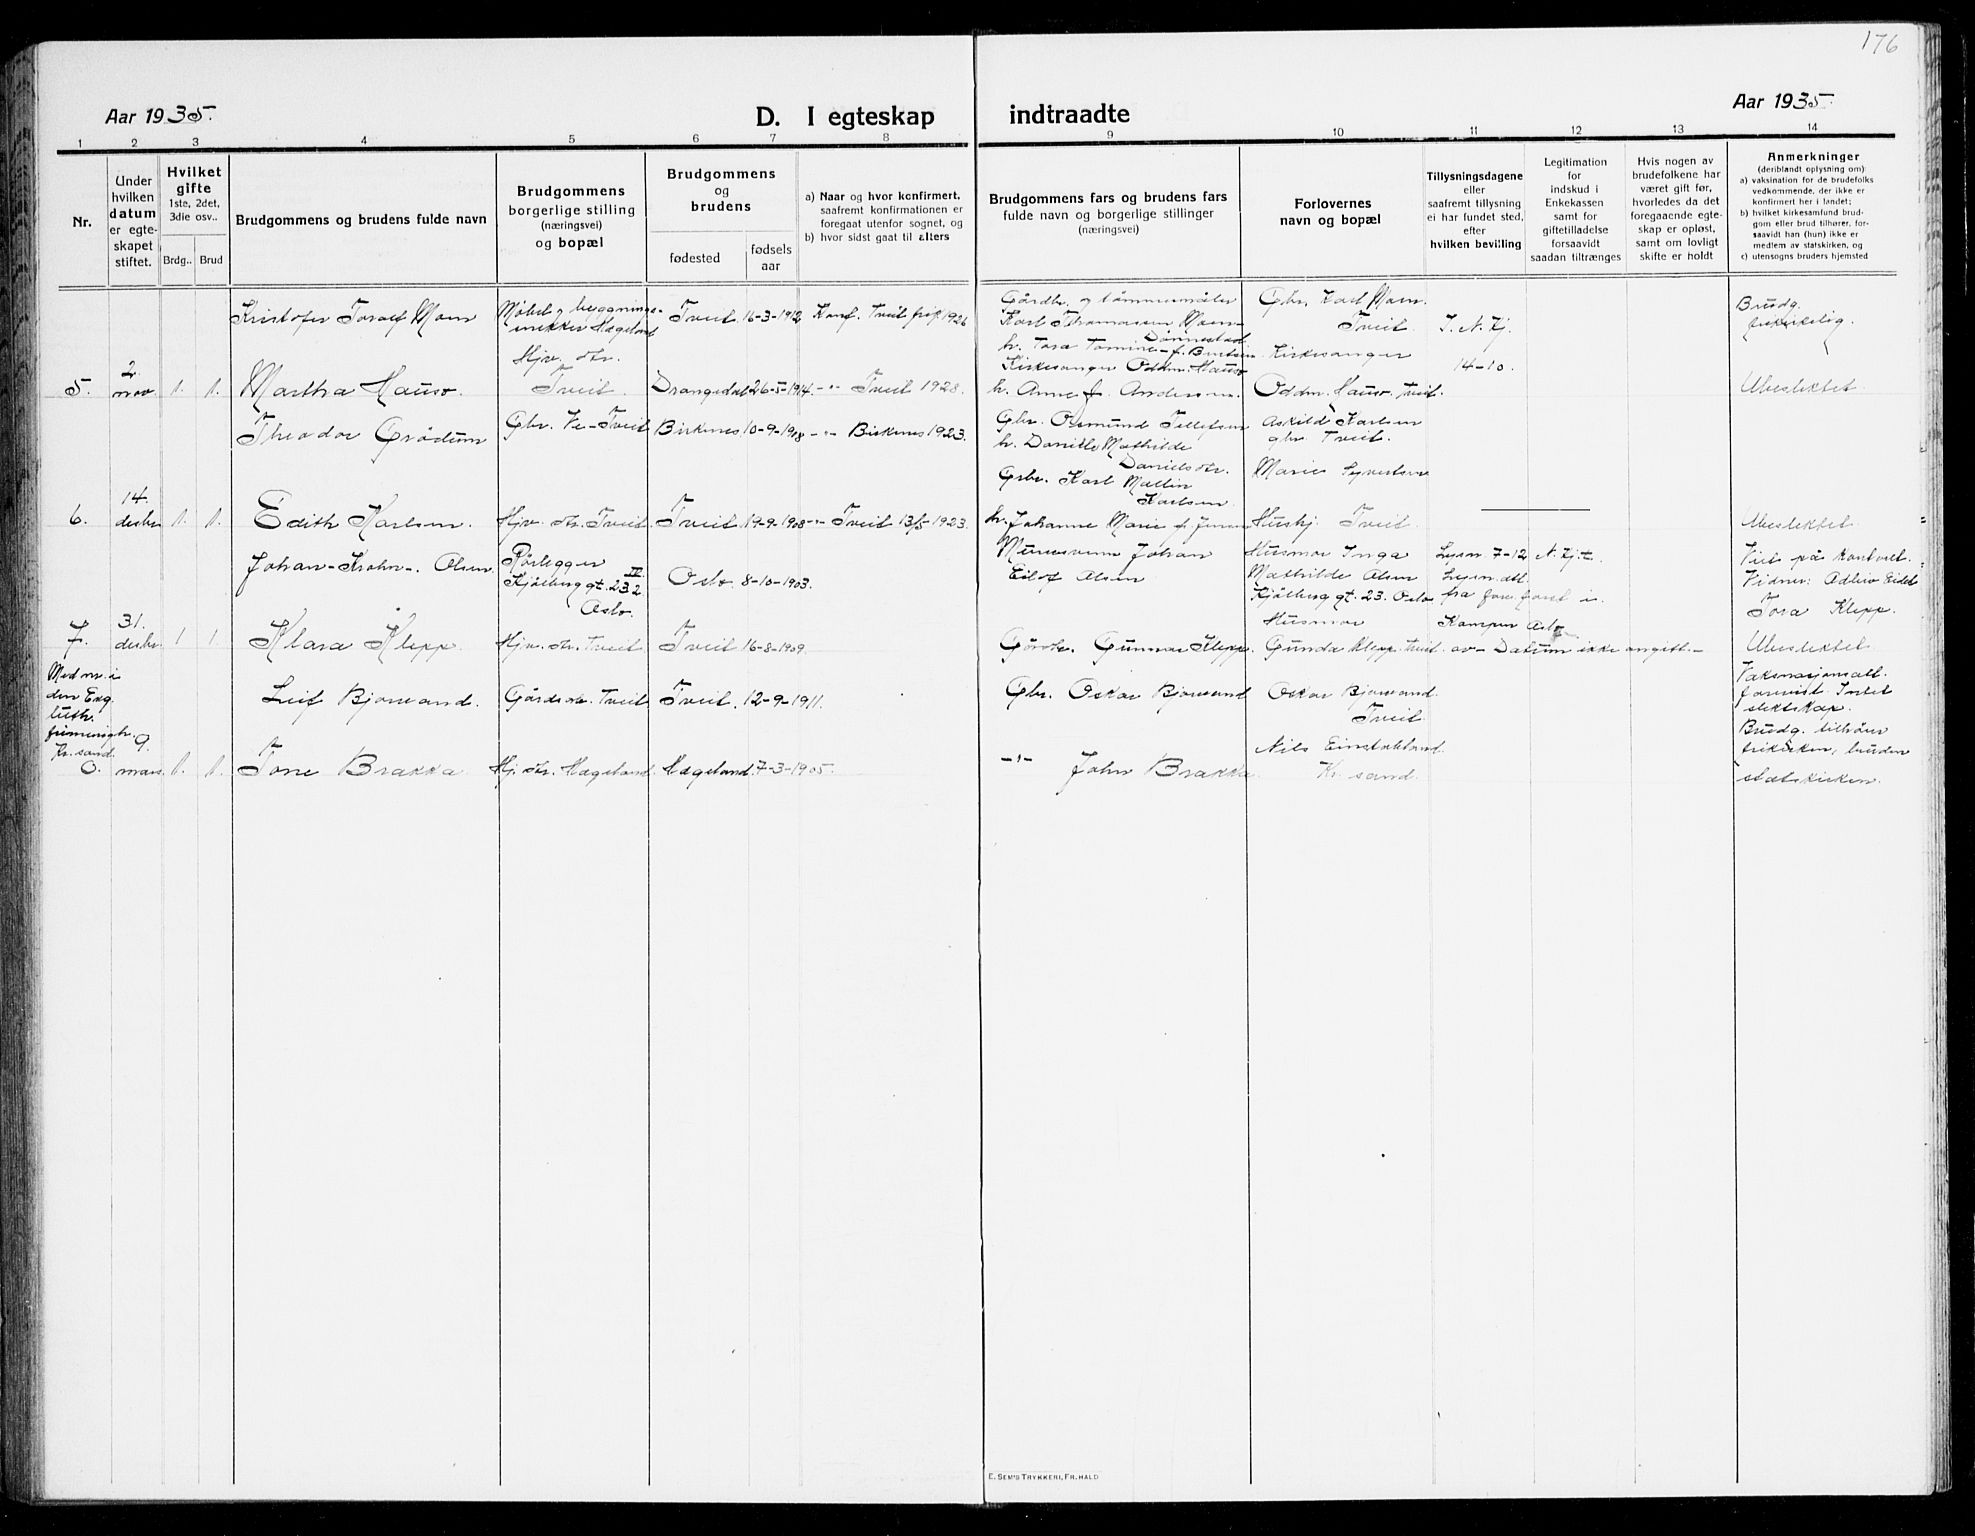 176
Aar 1935.
D. I egteskap
indtraadte
Aar 1935.
1 2 3 4 5 6 7 8 9 10 11 12 13 14
Nr.
Under
hvilken
datum
er egte-
skapet
stiftet.
Hvilket
gifte
1ste, 2det,
3die osv..
Brdg.. Brud
Brudgommens og brudens fulde navn
Brudgommens
borgerlige stilling
(næringsvei)
og bopæl
Brudgommens
og
brudens
fødested
fødsels
aar
a) Naar og hvor konfirmert,
saafremt konfirmationen er
foregaat utenfor sognet, og
b) hvor sidst gaat til alters
Brudgommens fars og brudens fars
fulde navn og borgerlige stillinger
(næringsvei)
Forlovernes
navn og bopæl
Tillysningsdagene
eller
saafremt tillysning
ei har fundet sted,
efter
hvilken bevilling
Legitimation
for
indskud i
Enkekassen
samt for
giftetilladelse
forsaavidt
saadan tiltrænges
Hvis nogen av
brudefolkene har
været gift før,
hvorledes da det
foregaaende egte-
skap er opløst,
samt om lovligt
skifte er holdt
Anmerkninger
(deriblandt oplysning om):
a) vaksination for de brudefolks
vedkommende, der ikke er
konfirmert her i landet;
b) hvilket kirkesamfund brud-
gom eller brud tilhører, for-
saavidt han (hun) ikke er
medlem av statskirken, og
c) utensogns bruders hjemsted
Kristofer Toralf Moen
Møbel og bygnings-
snekker Hægeland
Tveit 16-3-1912 Konf. Tveit frip 1926
Gårdbr. og tømmermåler
Karl Thomassen Moen
h. Tora Tomine f. Bentsen
Gbr. Karl Moen.
Tveit.
J. N. Kj.
14-10.
Brudg.
frikirkelig.
5. 2 nov. 1. 1. Martha Hauso.
Hjv. dtr.
Tveit
Drangedal 26-5-1914. -"- Tveit 1928.
Kirkesanger Oddm. Hauso
h. Anne f. Andersen.
Kirkesanger
Oddm. Hauso Tveit.
Ubeslektet.
Theodor Grødum
Gbr. Ve-Tveit
Birkenes 10-9-1908 -"- Birkenes 1923.
Gbr. Osmund Tellefsen
h. Danille Mathilde
Danielsdtr.
Askild Karlsen
gbr. Tveit.
6. 14. desbr. 1. 1. Edith Karlsen.
Hjv. dtr. Tveit
Tveit 19-9-1908 -"- Tveit 13/5-1923.
Gbr. Karl Mallin
Karlsen
h. Johanne Marie f. Jensen
Marie Syvertsen
Huskj. Tveit.
Ubeslektet.
Johan-Krohn-. Olsen
Rørlegger
Kjølberggt. 23 2 IV
Oslo.
Oslo 8-10-1903.
Murersvenn Johan
Eilof Olsen
Husmor Inga
Mathilde Olsen
Kjølberggt. 23. Oslo
Lysn 7-12 N. Kj.
Lysn. att.
fra
Kampen Oslo
Viet på kontoret.
Vidner: Adleiv Eidet
Tora Klepp.
7. 31. desbr. 1 1 Klara Klepp.
Hjv. dtr. Tveit
Tveit 16-8-1909.
Gårdbr. Gunnar Klepp.
Husmor
Gunda Klepp Tveit.
av- Datum ikke angitt.-
Ubeslektet.
Med nr. i
den Evg.
luth.
frimenigh.
Kr.sand.
0. 9. mars. 1. 1.
Leif Bjorvand.
Gårdsdr. Tveit
Tveit. 12-9-1911.
Gbr. Oskar Bjorvand
Oskar Bjorvand
Tveit.
Vaksinasjonsatt.
forevist. Intet
slektskap.
Brudg. tilhører
frikirken, bruden
statskirken.
Tone Brakka
Hj. dtr. Hægeland.
Hægeland. 7-3-1905.
-"- John Brakka.
Nils Einstabland.
Kr. sand.
E. SEM'S TRYKKERI, FR.HALD